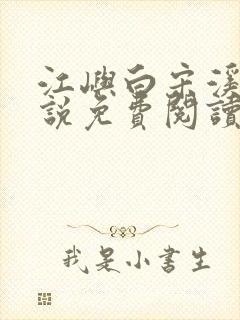 江嶼白宋溪
說免費閱讀
我是小書生